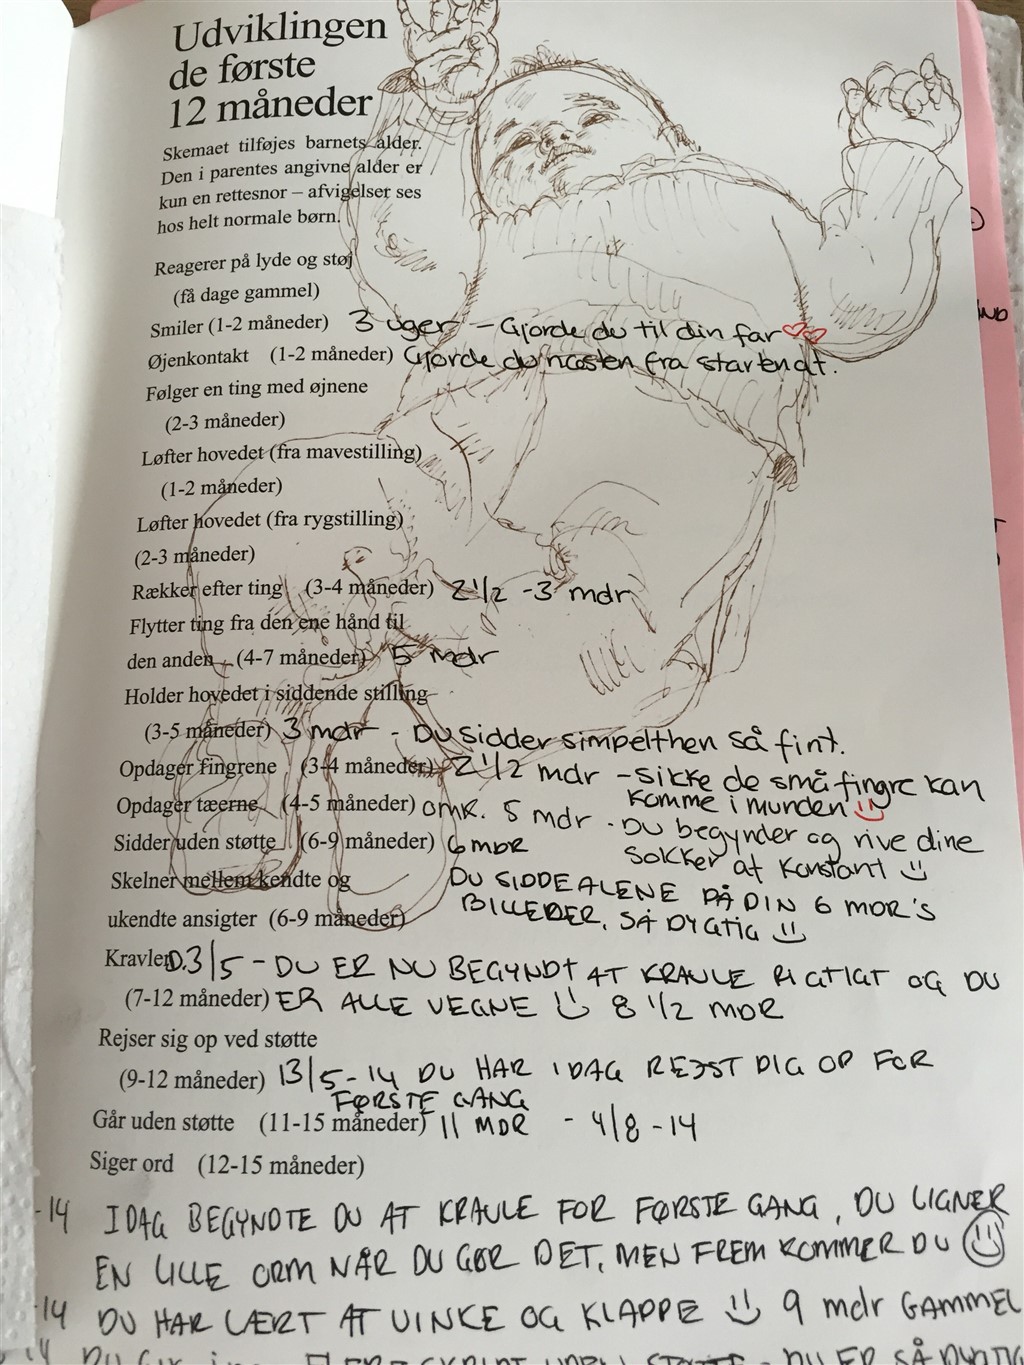 Udviklingen
de første
12 måneder
Skemaet tilføjes barnets alder.
Den i parentes angivne alder er
kun en rettesnor – afvigelser ses
hos helt normale børn.
Reagerer på lyde og støj
(få dage gammel)
Smiler (1-2 måneder) 3 uger - Gjorde du til din far
Øjenkontakt (1-2 måneder) Gjorde du næsten fra starten af.
Følger en ting med øjnene
(2-3 måneder)
Løfter hovedet (fra mavestilling)
(1-2 måneder)
Løfter hovedet (fra rygstilling)
(2-3 måneder)
Rækker efter ting (3-4 måneder) 2 1/2 - 3 mdr
Flytter ting fra den ene hånd til
den anden (4-7 måneder) 5 mdr
Holder hovedet i siddende stilling
(3-5 måneder) 3 mdr - Du sidder simpelthen så fint.
Opdager fingrene (3-4 måneder) 2 1/2 mdr - sikke de små fingre kan
komme i munden
Opdager tæerne (4-5 måneder) omk. 5 mdr - Du begynder og rive dine
sokker af konstant
Sidder uden støtte (6-9 måneder) 6 MDR
DU SIDDE ALENE PÅ DIN 6 MDR'S
BILLEDER, SÅ DYGTIG
Skelner mellem kendte og
ukendte ansigter (6-9 måneder)
Kravler D. 3/5 - DU ER NU BEGYNDT AT KRAVLE RIGTIGT OG DU
(7-12 måneder) ER ALLE VEGNE 8 1/2 MDR
Rejser sig op ved støtte
(9-12 måneder) 13/5-14 DU HAR IDAG REJST DIG OP FOR
FØRSTE GANG
Går uden støtte (11-15 måneder) 11 MDR - 4/8-14
Siger ord (12-15 måneder)
-14 IDAG BEGYNDTE DU AT KRAVLE FOR FØRSTE GANG, DU LIGNER
EN LILLE ORM NÅR DU GØR DET, MEN FREM KOMMER DU
-14 DU HAR LÆRT AT VINKE OG KLAPPE 9 mdr GAMMEL